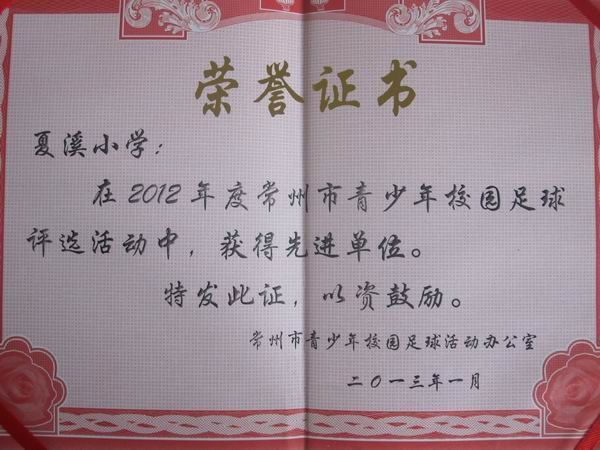 荣誉证书
夏溪小学：
在2012年度常州市青少年校园足球
评选活动中，获得先进单位。
特发此证，以资鼓励。
常州市青少年校园足球活动办公室
二〇一三年一月